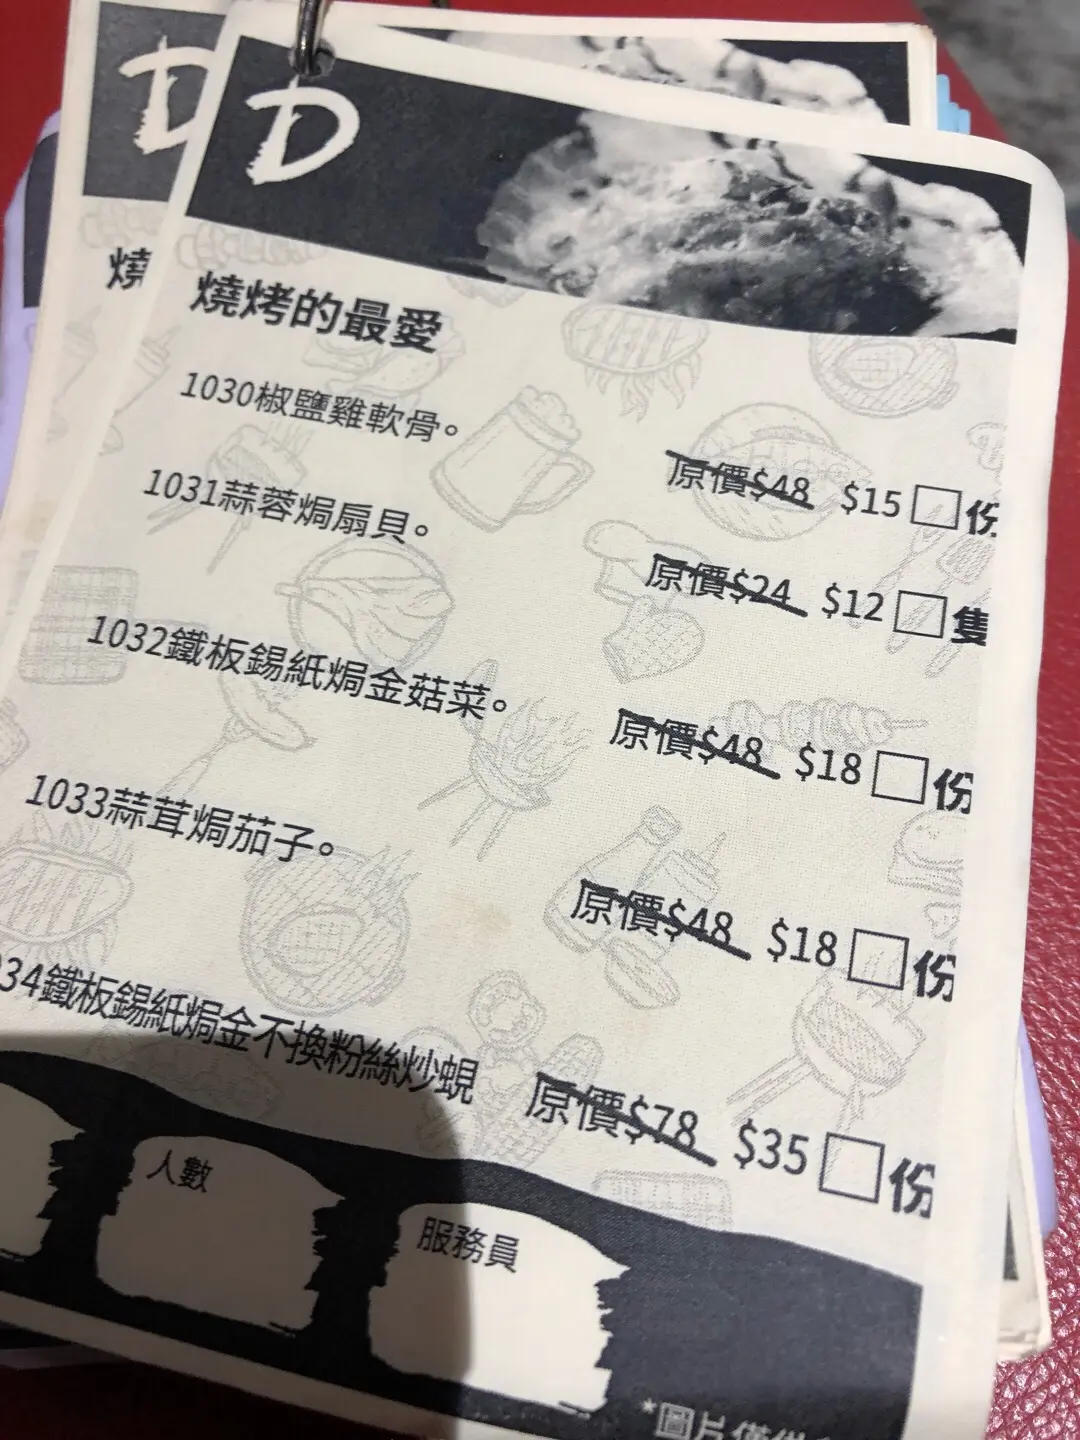 D
D
燒
燒烤的最愛
1030椒鹽雞軟骨。
原價$48 $15 份
1031蒜蓉焗扇貝。
原價$24 $12 隻
1032鐵板錫紙焗金菇菜。
原價$48 $18 份
1033蒜茸焗茄子。
原價$48 $18 份
034鐵板錫紙焗金不換粉絲炒蜆
原價$78 $35 份
人數
服務員
*圖片僅供